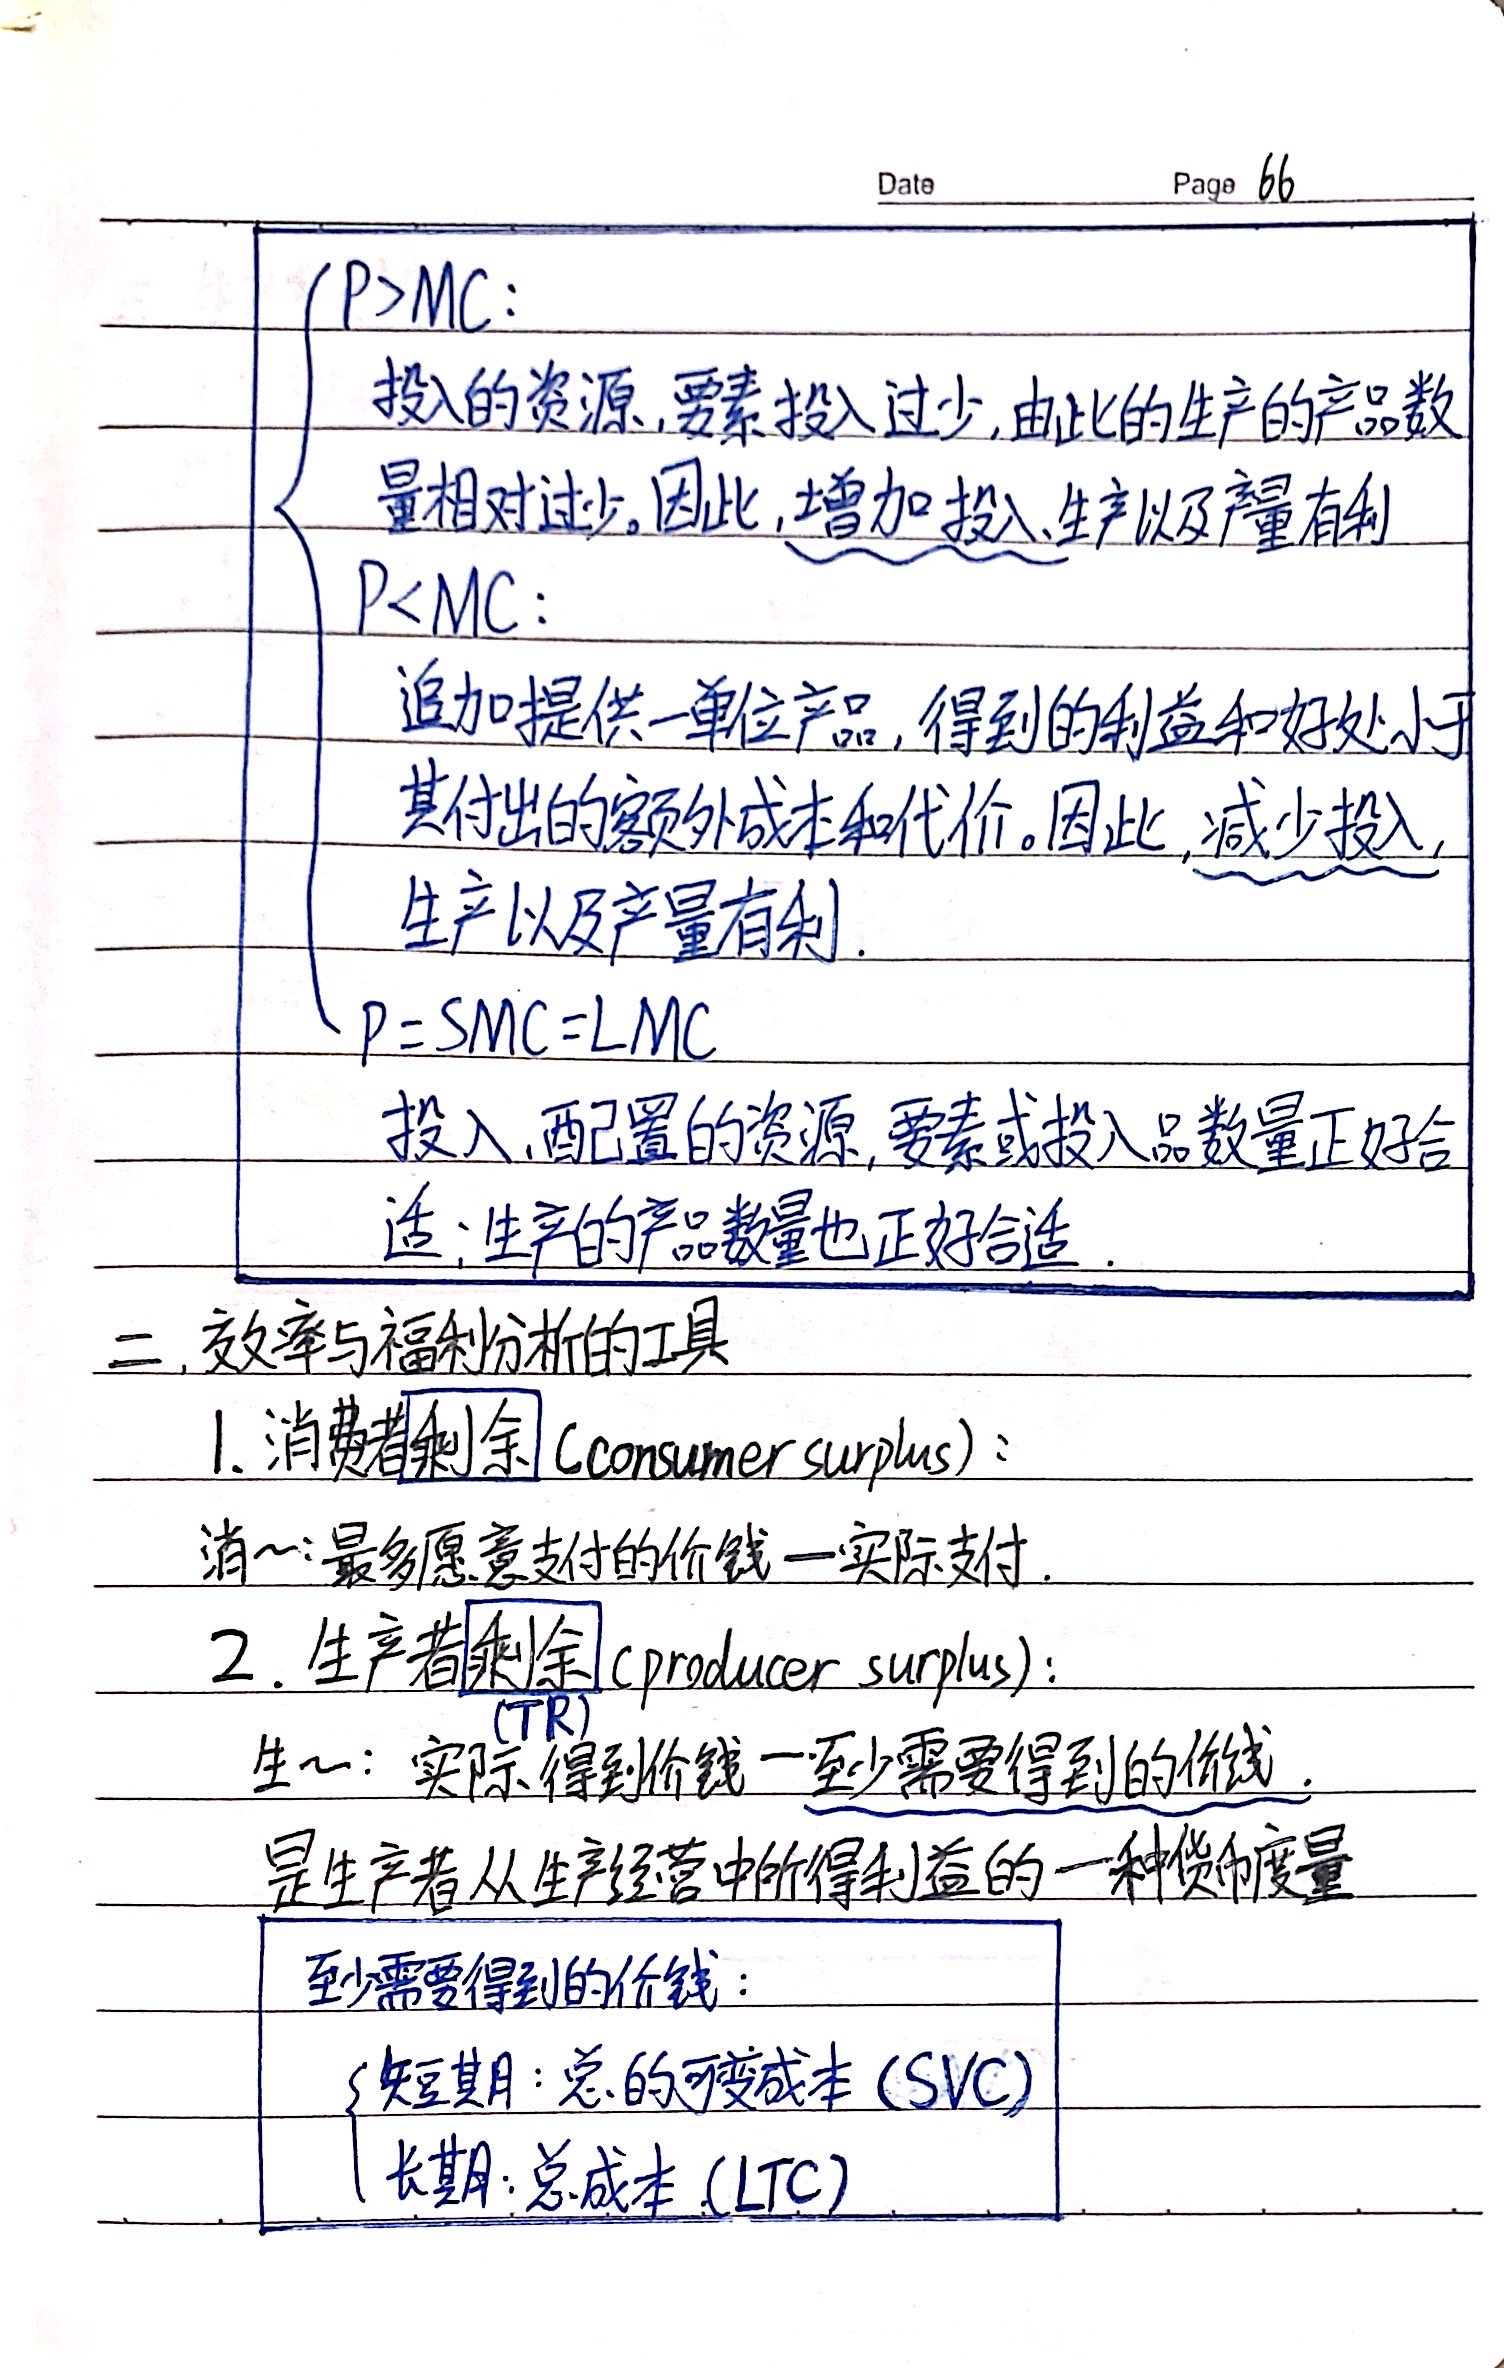 Date Page 66
P>MC:
投入的资源,要素投入过少,由此的生产的产品数
量相对过少。因此,增加投入、生产以及产量有利
P<MC:
追加提供一单位产品,得到的利益和好处小于
其付出的额外成本和代价。因此,减少投入,
生产以及产量有利.
P=SMC=LMC
投入、配置的资源,要素或投入品数量正好合
适;生产的产品数量也正好合适.
二、效率与福利分析的工具
1. 消费者剩余(consumer surplus):
消~:最多愿意支付的价钱-实际支付.
2. 生产者剩余(producer surplus):
(TR)
生~: 实际得到价钱-至少需要得到的价钱.
是生产者从生产经营中所得利益的一种货币度量
至少需要得到的价钱:
短期:总的可变成本(SVC)
长期:总成本(LTC)